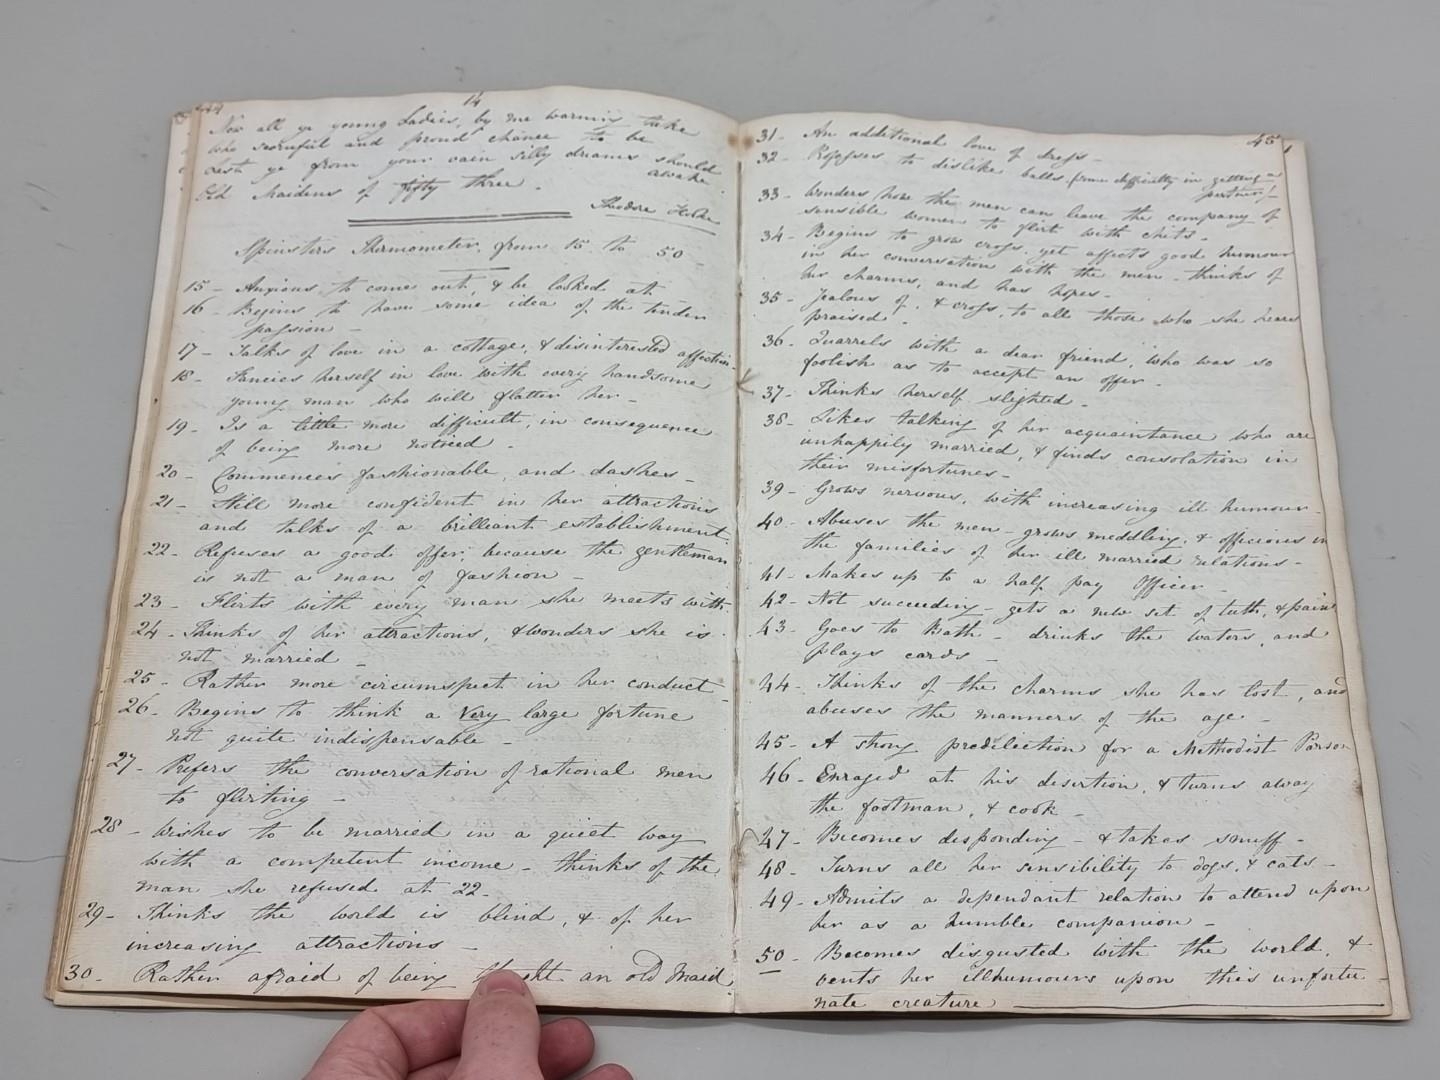 44
14
Now all ye young Ladies, by me warning take
who scornful and proud chance to be
Lest ye from your vain silly dreams should
awake
Old Maidens of fifty three.
Theodore Hooke
Spinsters Thermometer, from 15 to 50-
15 - Anxious to come out, & be looked at
16 - Begins to have some idea of the tender
passion -
17 - Talks of love in a cottage, & disinterested affection.
18 - Fancies herself in love with every handsome
young man who will flatter her -
19 - Is a little more difficult, in consequence
of being more noticed -
20 - Commences fashionable, and dashes -
21 - Still more confident in her attractions
and talks of a brilliant establishment.
22 - Refuses a good offer because the gentleman
is not a man of fashion -
23 - Flirts with every man she meets with.
24 - Thinks of her attractions, & wonders she is
not married -
25 - Rather more circumspect in her conduct
26 - Begins to think a very large fortune
not quite indispensable -
27 - Prefers the conversation of rational men
to flirting -
28 - Wishes to be married in a quiet way
with a competent income - thinks of the
man she refused at 22-
29 - Thinks the world is blind, & of her
increasing attractions -
30 - Rather afraid of being thought an old Maid
45
31 - An additional love of dress -
32 - Professes to dislike balls (from difficulty in getting a
partner)
33 - Wonders how the men can leave the company of
sensible women to flirt with chits -
34 - Begins to grow cross, yet affects good humour
in her conversation with the men - thinks of
her charms, and has hopes -
35 - Jealous of, & cross, to all those who she hears
praised.
36 - Quarrels with a dear friend, who was so
foolish as to accept an offer -
37 - Thinks herself slighted -
38 - Likes talking of her acquaintance who are
unhappily married, & finds consolation in
their misfortunes -
39 - Grows nervous, with increasing ill humour -
40 - Abuses the men - grows meddling, & officious in
the families of her ill married relations -
41 - Makes up to a half pay Officer -
42 - Not succeeding - gets a new set of teeth, & paints
43 - Goes to Bath - drinks the waters, and
plays cards -
44 - Thinks of the charms she has lost, and
abuses the manners of the age -
45 - A strong predilection for a Methodist Parson
46 - Enraged at his desertion, & turns away
the footman, & cook -
47 - Becomes desponding - & takes snuff -
48 - Turns all her sensibility to dogs, & cats -
49 - Admits a dependant relation to attend upon
her as a humble companion -
50 - Becomes disgusted with the world, &
vents her illhumours upon this unfortu-
nate creature